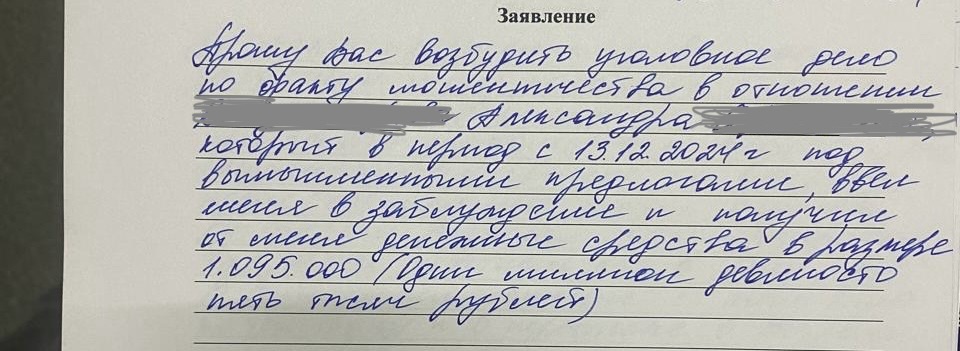 Заявление
Прошу Вас возбудить уголовное дело
по факту мошенничества в отношении
Александра
который в период с 13.12.2024г под
вымышленными предлогами, ввел
меня в заблуждение и получил
от меня денежные средства в размере
1.095.000 (Один миллион девяносто
пять тысяч рублей)